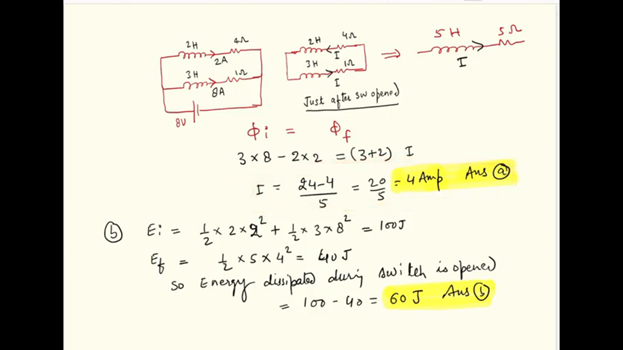 2H 4Ω 2H 4Ω 5H 5Ω
2A I I
3H 1Ω 3H 1Ω
8A I
8V Just after sw opened
Φi = Φf
3×8 − 2×2 = (3+2) I
I = 24-4/5 = 20/5 = 4 Amp Ans ⓐ
ⓑ Ei = 1/2 × 2 × 2² + 1/2 × 3 × 8² = 100J
Ef = 1/2 × 5 × 4² = 40 J
so Energy dissipated during switch is opened
= 100 - 40 = 60 J Ans ⓑ